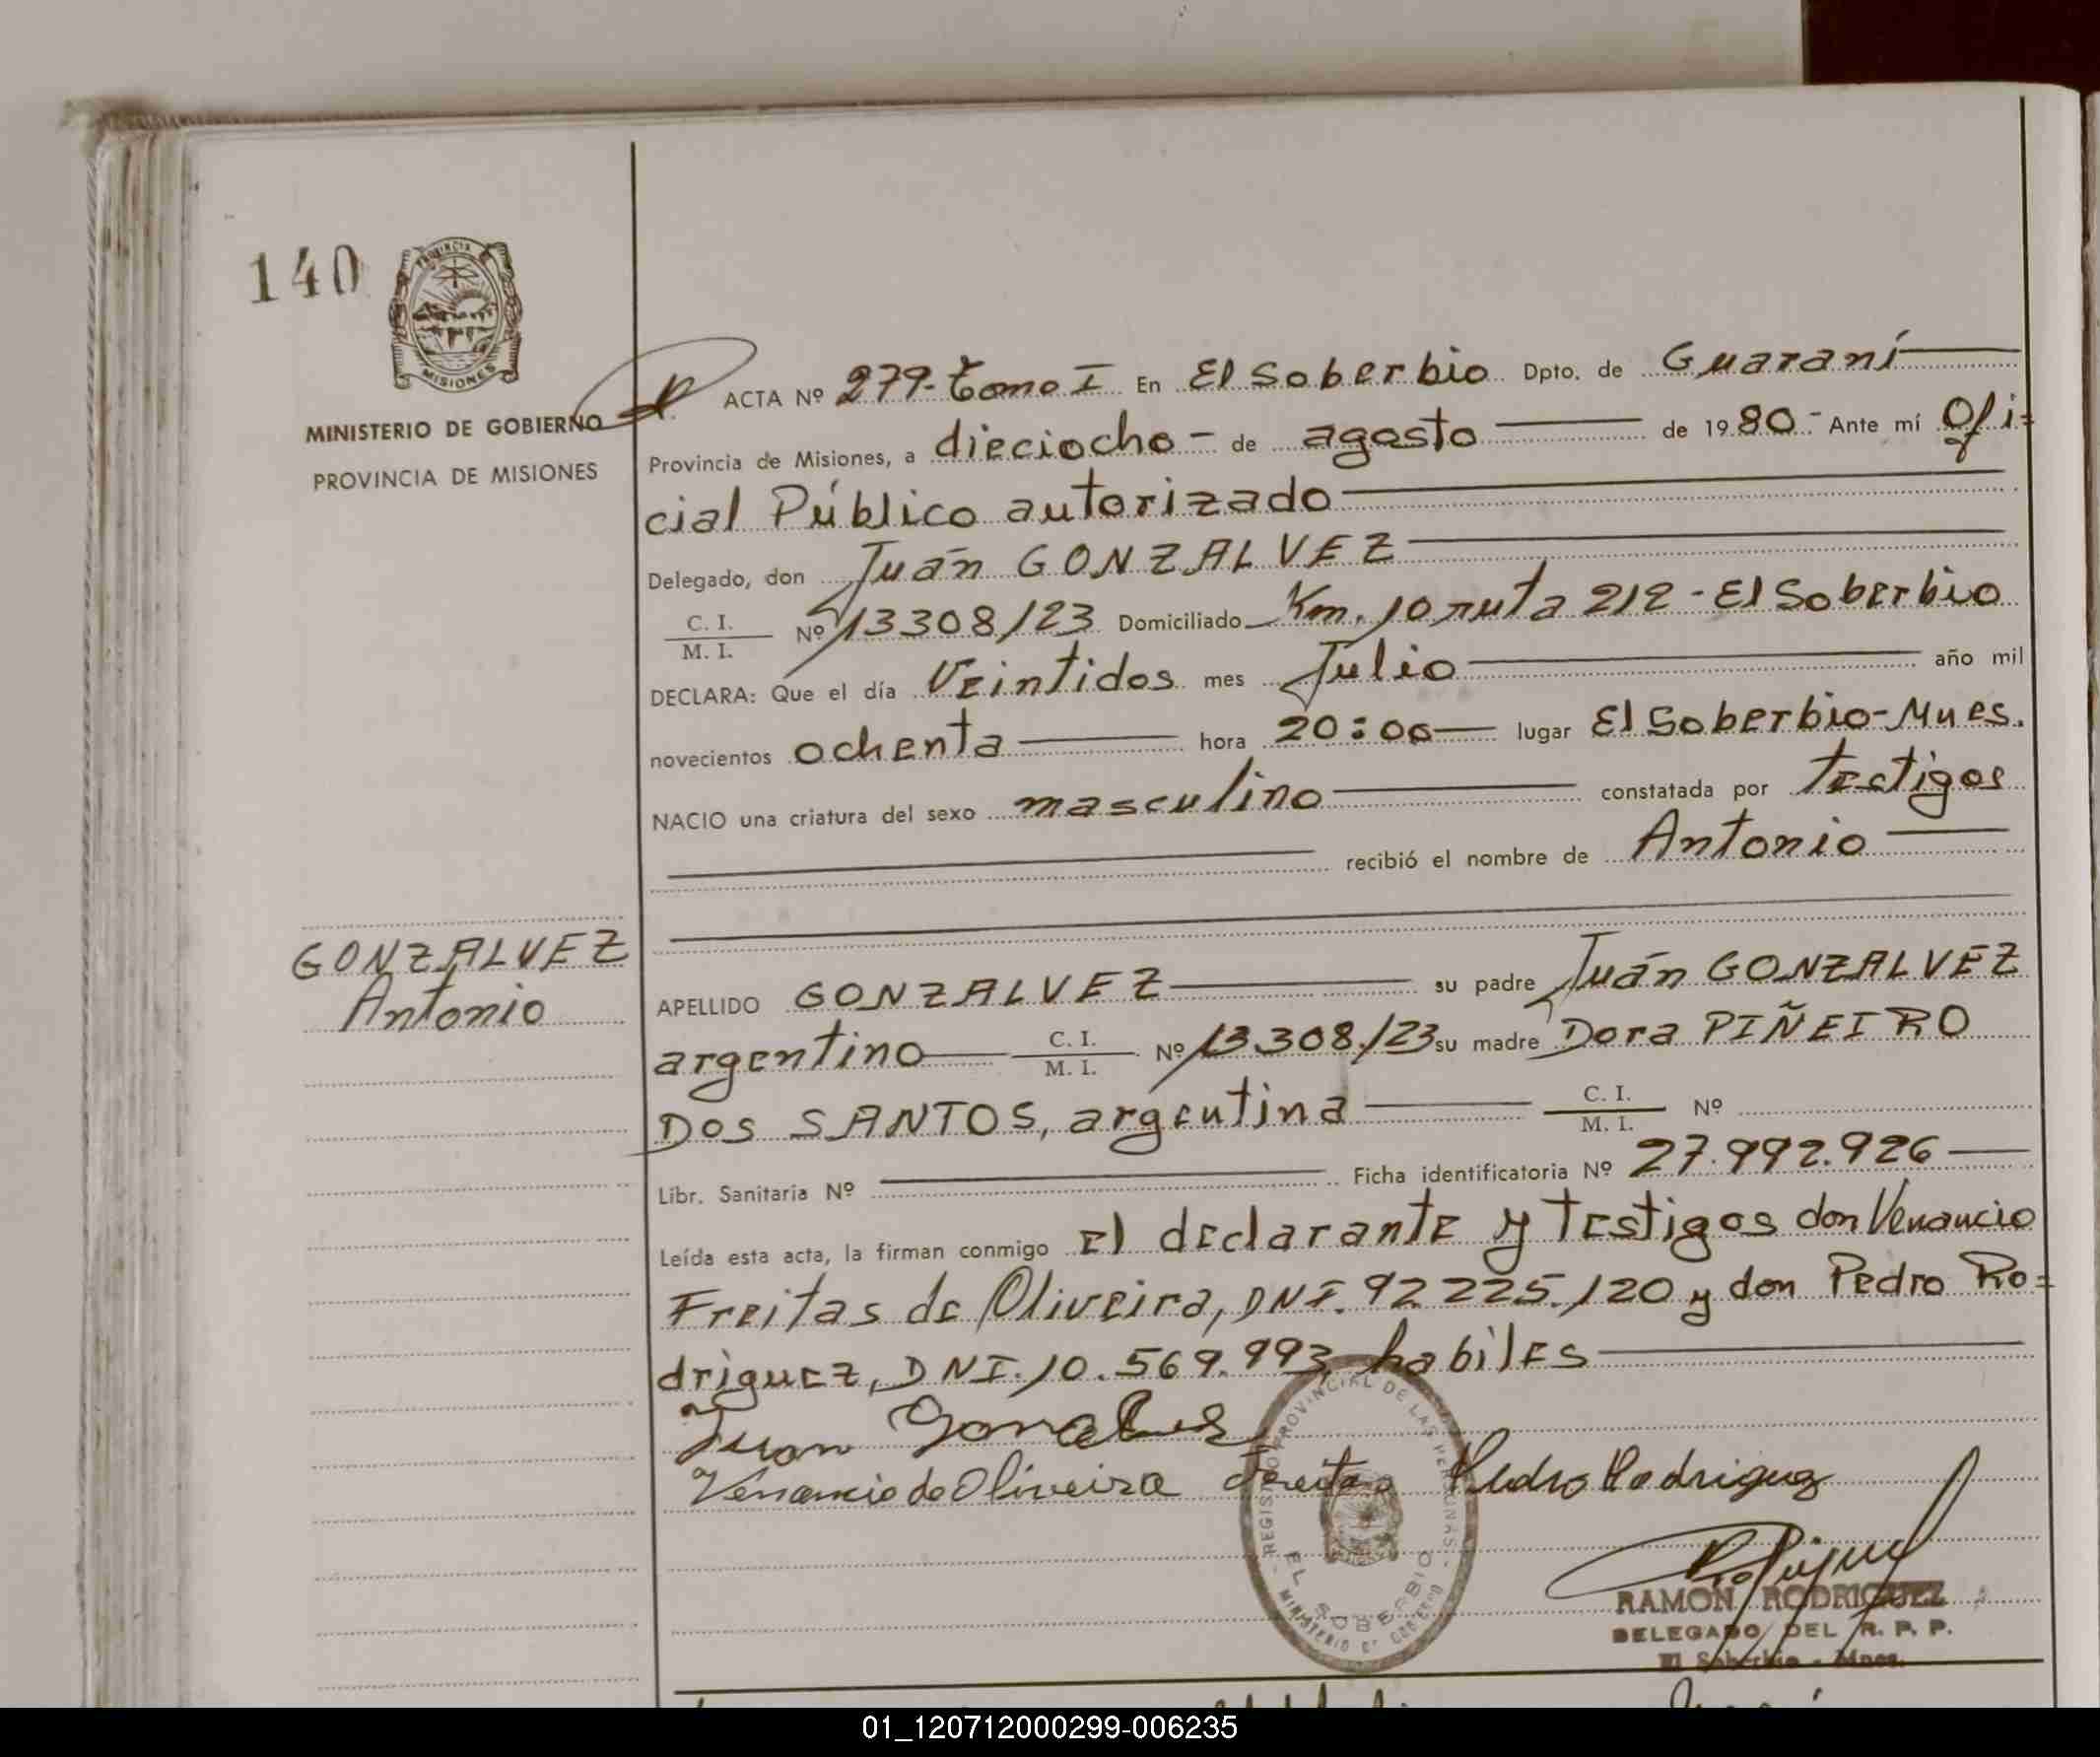 140
PROVINCIA
MISIONES
MINISTERIO DE GOBIERNO
PROVINCIA DE MISIONES
ACTA Nº 279- Tomo I En El Soberbio Dpto. de Guaraní
Provincia de Misiones, a dieciocho - de agosto de 1980.- Ante mí Ofi=
cial Público autorizado
Delegado, don Juán GONZALVEZ
C. I. / M. I. Nº 13308/23 Domiciliado Km. 10 ruta 212 - El Soberbio
DECLARA: Que el día Veintidos mes Julio año mil
novecientos ochenta hora 20:00 lugar El Soberbio-Mnes.
NACIO una criatura del sexo masculino constatada por testigos
recibió el nombre de Antonio
GONZALVEZ
Antonio
APELLIDO GONZALVEZ su padre Juán GONZALVEZ
argentino C. I. / M. I. Nº 13.308./23 su madre Dora PIÑEIRO
DOS SANTOS, argentina C. I. / M. I. Nº
Libr. Sanitaria Nº Ficha identificatoria Nº 27.992.926
Leída esta acta, la firman conmigo el declarante y testigos don Venancio
Freitas de Oliveira, DNI. 92.225.120 y don Pedro Ro=
driguez, DNI. 10.569.993, habiles
Juan Gonzalvez
Venancio de Oliveira Freitas Pedro Rodriguez
REGISTRO PROVINCIAL DE LAS PERSONAS -
EL SOBERBIO
MINISTERIO DE GOBIERNO
RAMON RODRIGUEZ
DELEGADO DEL R. P. P.
El Soberbio - Mnes.
01_120712000299-006235